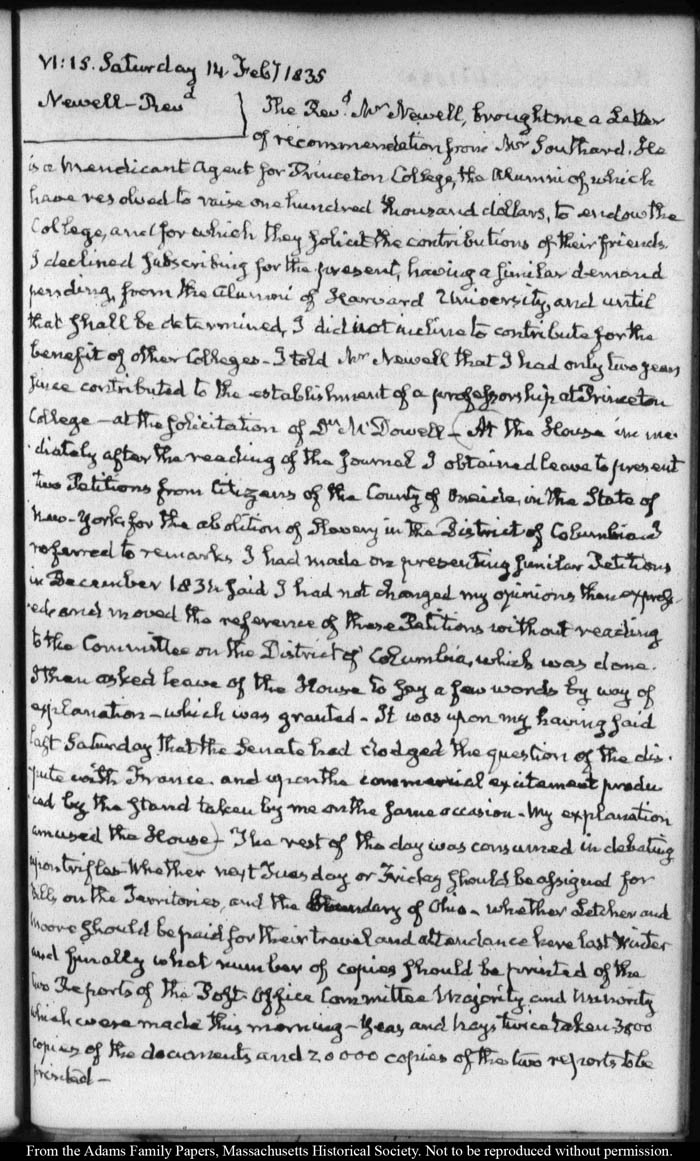 VI:15. Saturday 14. Feby 1835
Newell-Revd
The Revd. Mr Newell, brought me a Letter
of recommendation from Mr Southard. He
is a Mendicant Agent for Princeton College, the Alumni of which
have resolved to raise one hundred thousand dollars, to endow the
College, and for which they solicit the contributions of their friends.
I declined subscribing for the present, having a similar demand
pending, from the Alumni of Harvard University, and until
that shall be determined, I did not incline to contribute for the
benefit of other Colleges - I told Mr Newell that I had only two years
since contributed to the establishment of a professorship at Princeton
College - at the solicitation of Dr McDowell - (At the House imme-
diately after the reading of the Journal I obtained leave to present
two Petitions from Citizens of the County of Oneida, in the State of
New-York, for the abolition of Slavery in the District of Columbia. I
referred to remarks I had made on presenting similar Petitions
in December 1831. said I had not changed my opinions then express-
ed, and moved the reference of these Petitions without reading
to the Committee on the District of Columbia, which was done.
I then asked leave of the House to say a few words by way of
explanation - which was granted - It was upon my having said
last Saturday that the Senate had dodged the question of the dis-
pute with France. and upon the commercial excitement produ
ced by the stand taken by me on the same occasion - My explanation
amused the House) - The rest of the day was consumed in debating
upon trifles - Whether next Tuesday or Friday should be assigned for
Bills on the Territories, and the Boundary of Ohio - whether Letcher and
Moore should be paid for their travel and attendance here last Winter
and finally what number of copies should be printed of the
two Reports of the Post-Office Committee Majority and Minority
which were made this morning - Yeas and Nays twice taken - 3000
copies of the documents and 20000 copies of the two reports to be
printed -
From the Adams Family Papers, Massachusetts Historical Society. Not to be reproduced without permission.